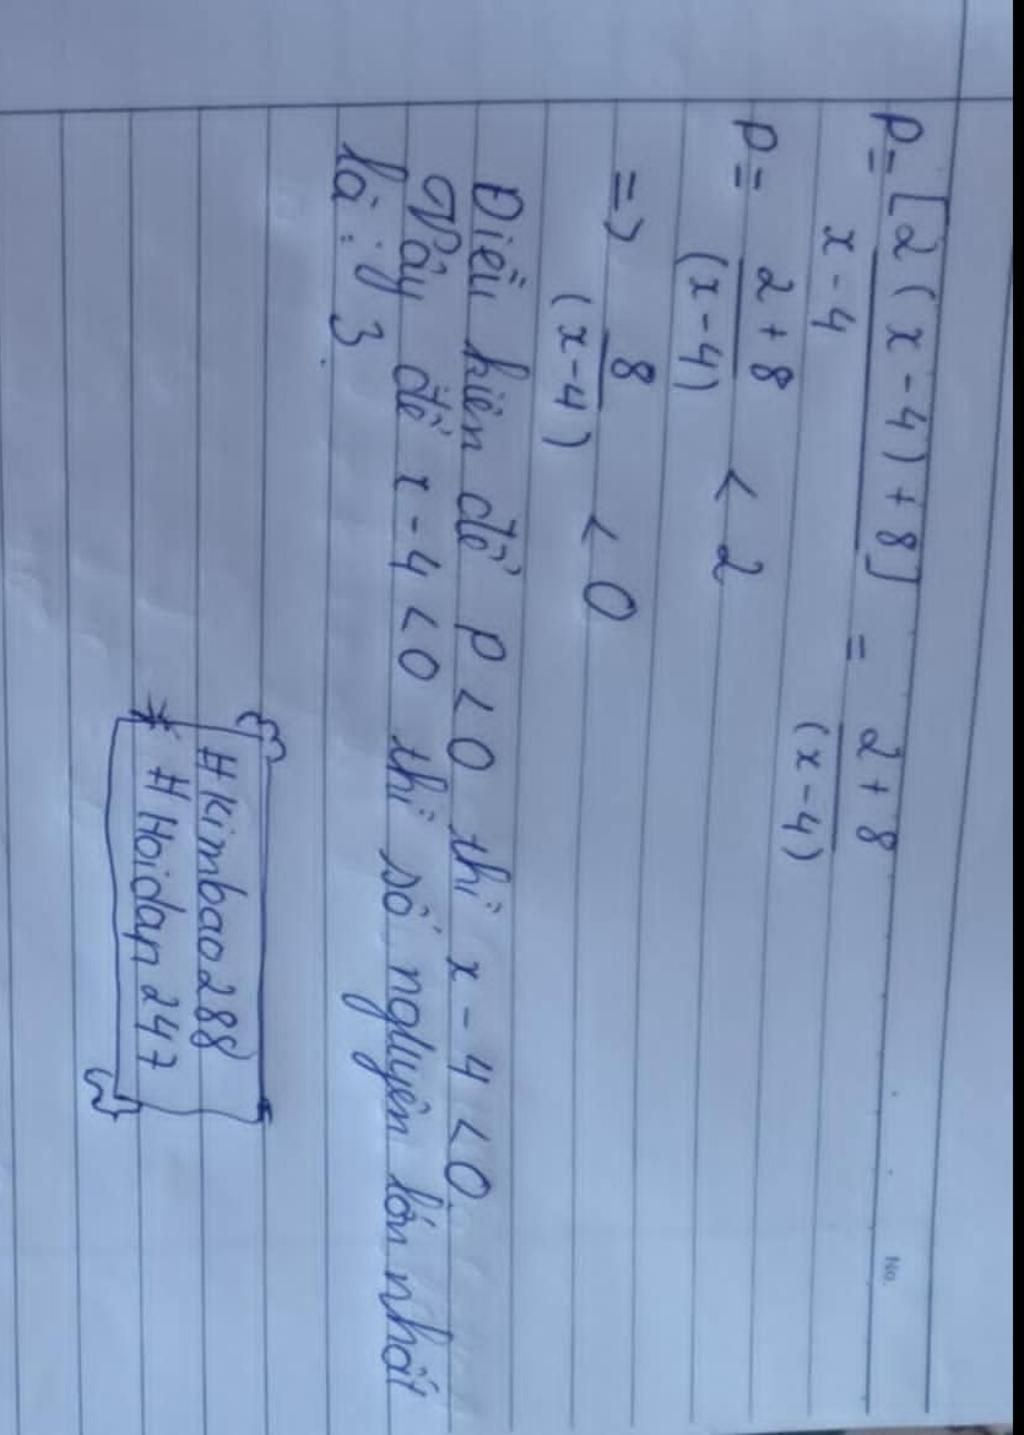 P = [2(x-4)+8] / x-4 = 2+8 / (x-4)
P = 2+8 / (x-4) < 2
=> 8 / (x-4) < 0
Điều kiện để P < 0 thì x - 4 < 0.
Vậy để x - 4 < 0 thì số nguyên lớn nhất
là : 3.
#Kimbao288
* #Hoidap247
No.